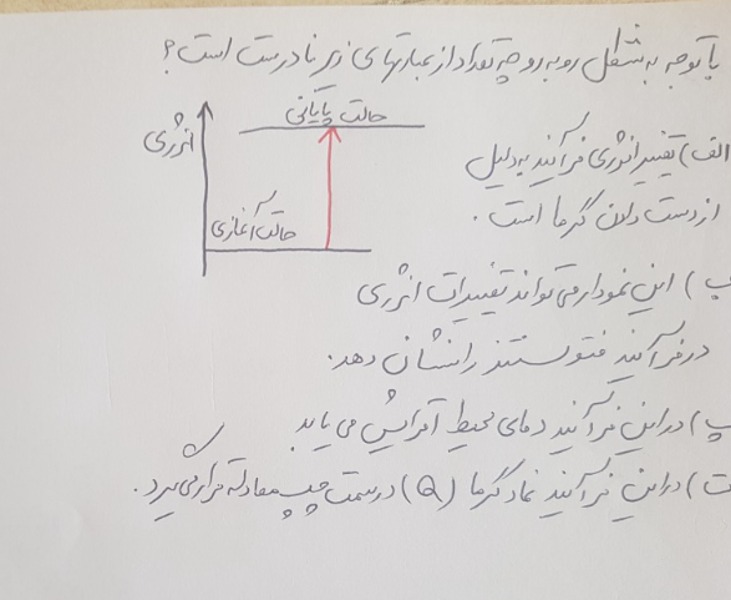 با توجه به شکل روبه رو چه تعداد از عبارتهای زیر نادرست است؟
حالت پایانی
انرژی
حالت آغازی
الف) تغییر انرژی فرآیند به دلیل
از دست دادن گرما است.
ب) این نمودار می تواند تغییرات انرژی
در فرآیند فتوسنتز را نشان دهد.
پ) در این فرآیند دمای محیط افزایش می یابد
ت) در این فرآیند نماد گرما (Q) در سمت چپ معادله قرار می گیرد.